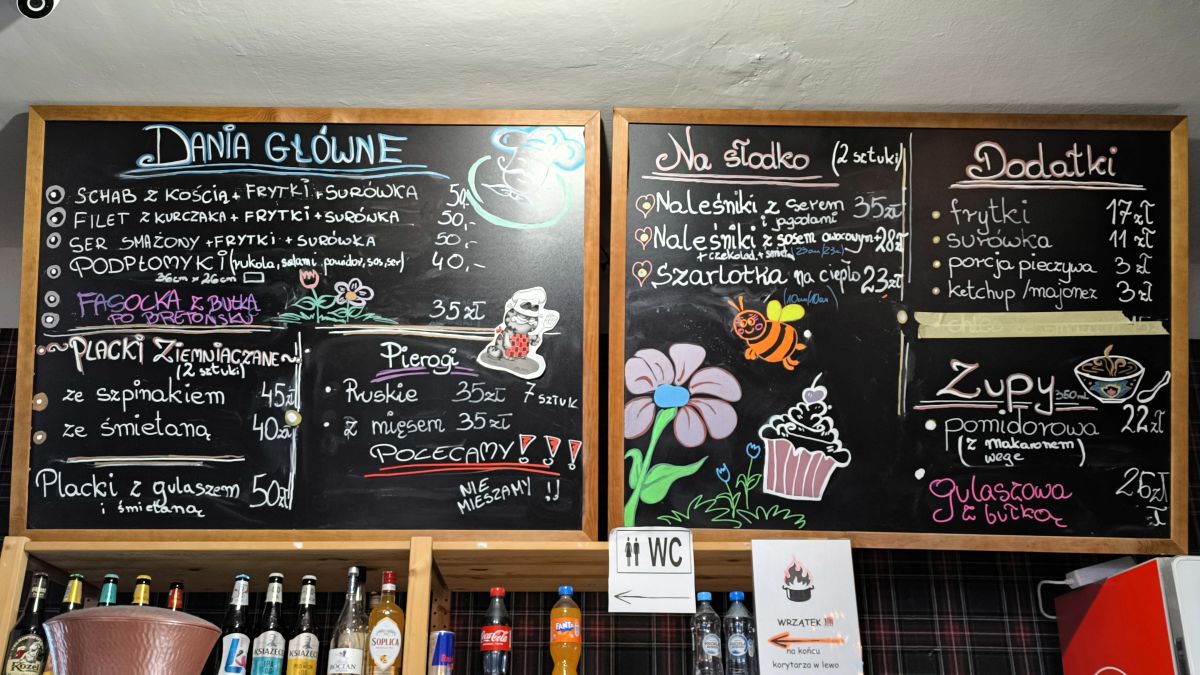 DANIA GŁÓWNE
SCHAB Z KOŚCIĄ + FRYTKI + SURÓWKA 50,-
FILET Z KURCZAKA + FRYTKI + SURÓWKA 50,-
SER SMAŻONY + FRYTKI + SURÓWKA 50,-
PODPŁOMYKI (rukola, salami, pomidor, sos, ser) 40,-
26cm x 26cm
FASOLKA Z BUŁKĄ 35zł
PO BRETOŃSKU
~PLACKI ZIEMNIACZANE~
(2 sztuki)
ze szpinakiem 45zł
ze śmietaną 40zł
Placki z gulaszem 50zł
i śmietaną
Pierogi
Ruskie 35zł 7 sztuk
z mięsem 35zł
POLECAMY!!!
NIE
MIESZAMY !!
Na słodko (2 sztuki)
Naleśniki z serem 35zł
i jagodami
Naleśniki z sosem owocowym + 28zł
+ czekolad. + śmiet.
Szarlotka na ciepło 23zł
(10cm/10cm)
Dodatki
frytki 17zł
surówka 11zł
porcja pieczywa 3zł
ketchup /majonez 3zł
Zupy 350ml
pomidorowa 22zł
(z makaronem)
wege
gulaszowa 26zł
z bułką zł
WC
WRZĄTEK !!!
na końcu
korytarza w lewo
Kozel
KSIĄŻĘCE
IPA
KSIĄŻĘCE
SOPLICA
Coca-Cola
FANTA